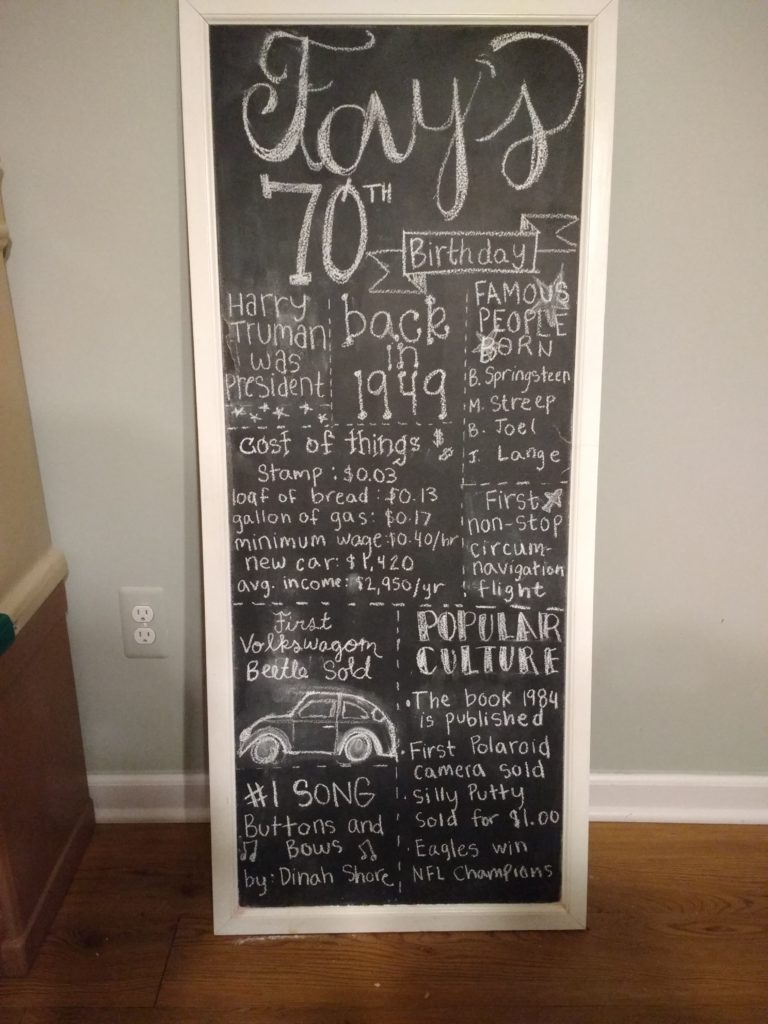 Fay's
70TH
Birthday
Harry
Truman
was
President
back
in
1949
FAMOUS
PEOPLE
BORN
B. Springsteen
M. Streep
B. Joel
J. Lange
cost of things $
Stamp: $0.03
loaf of bread: $0.13
gallon of gas: $0.17
minimum wage: $0.40/hr
new car: $1,420
avg. income: $2,950/yr
First
non-stop
circum-
navigation
flight
First
Volkswagom
Beetle Sold
#1 SONG
Buttons and
Bows
by: Dinah Shore
POPULAR
CULTURE
• The book 1984
is published
• First Polaroid
camera sold
• Silly Putty
Sold for $1.00
• Eagles win
NFL Champions